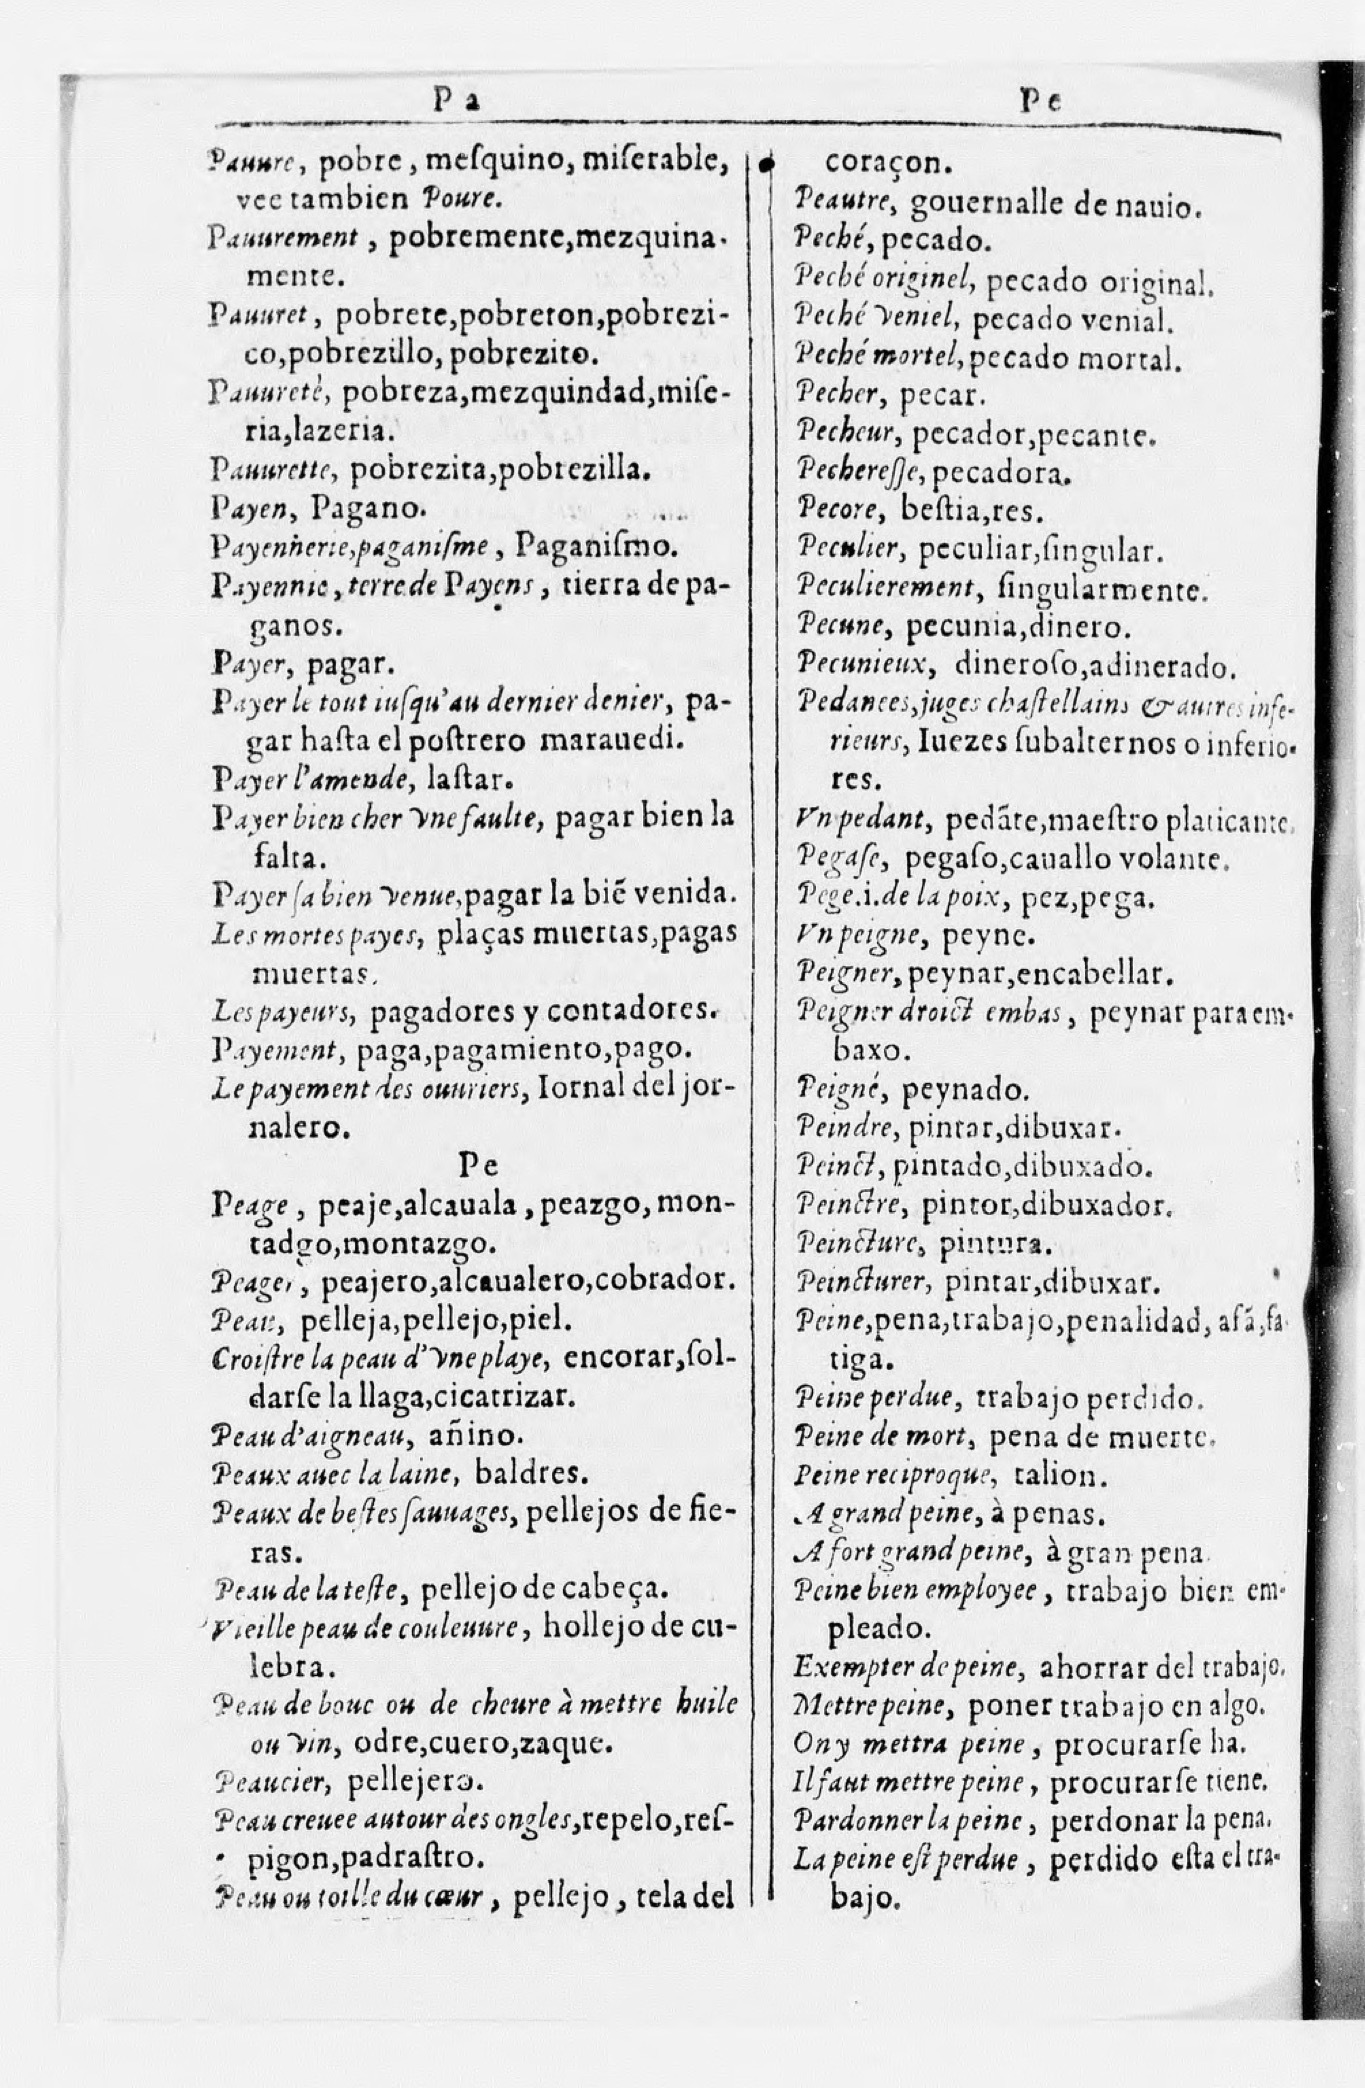 Pa
Pe
Pauure, pobre, meſquino, miſerable,
vee tambien Poure.
Pauurement, pobremente,mezquina-
mente.
Pauuret, pobrete,pobreton,pobrezi-
co,pobrezillo, pobrezito.
Pauureté, pobreza,mezquindad,miſe-
ria,lazeria.
Pauurette, pobrezita,pobrezilla.
Payen, Pagano.
Payennerie,paganiſme, Paganiſmo.
Payennie, terre de Payens, tierra de pa-
ganos.
Payer, pagar.
Payer le tout iuſqu'au dernier denier, pa-
gar haſta el poſtrero marauedi.
Payer l'amende, laſtar.
Payer bien cher vne faulte, pagar bien la
falta.
Payer ſa bien venue,pagar la biẽ venida.
Les mortes payes, plaças muertas,pagas
muertas.
Les payeurs, pagadores y contadores.
Payement, paga,pagamiento,pago.
Le payement des ouuriers, Iornal del jor-
nalero.
Pe
Peage, peaje,alcauala, peazgo, mon-
tadgo,montazgo.
Peager, peajero,alcaualero,cobrador.
Peau, pelleja,pellejo,piel.
Croiſtre la peau d'vne playe, encorar,ſol-
darſe la llaga,cicatrizar.
Peau d'aigneau, añino.
Peaux auec la laine, baldres.
Peaux de beſtes ſauuages, pellejos de fie-
ras.
Peau de la teſte, pellejo de cabeça.
Vieille peau de couleuure, hollejo de cu-
lebra.
Peau de bouc ou de cheure à mettre huile
ou vin, odre,cuero,zaque.
Peaucier, pellejero.
Peau creuee autour des ongles,repelo,reſ-
pigon,padraſtro.
Peau ou toille du cœur, pellejo, tela del
coraçon.
Peautre, gouernalle de nauio.
Peché, pecado.
Peché originel, pecado original.
Peché veniel, pecado venial.
Peché mortel, pecado mortal.
Pecher, pecar.
Pecheur, pecador,pecante.
Pechereſſe, pecadora.
Pecore, beſtia,res.
Peculier, peculiar,ſingular.
Peculierement, ſingularmente.
Pecune, pecunia,dinero.
Pecunieux, dineroſo,adinerado.
Pedanees,juges chaſtellains & autres infe-
rieurs, Iuezes ſubalternos o inferio-
res.
Vn pedant, pedãte,maeſtro platicante.
Pegaſe, pegaſo,cauallo volante.
Pege.i.de la poix, pez,pega.
Vn peigne, peyne.
Peigner, peynar,encabellar.
Peigner droict embas, peynar para em-
baxo.
Peigné, peynado.
Peindre, pintar,dibuxar.
Peinct, pintado,dibuxado.
Peinctre, pintor,dibuxador.
Peincture, pintura.
Peincturer, pintar,dibuxar.
Peine,pena,trabajo,penalidad, afã,fa-
tiga.
Peine perdue, trabajo perdido.
Peine de mort, pena de muerte.
Peine reciproque, talion.
A grand peine, à penas.
A fort grand peine, à gran pena.
Peine bien employee, trabajo bien em-
pleado.
Exempter de peine, ahorrar del trabajo.
Mettre peine, poner trabajo en algo.
On y mettra peine, procurarſe ha.
Il faut mettre peine, procurarſe tiene.
Pardonner la peine, perdonar la pena.
La peine eſt perdue, perdido eſta el tra-
bajo.